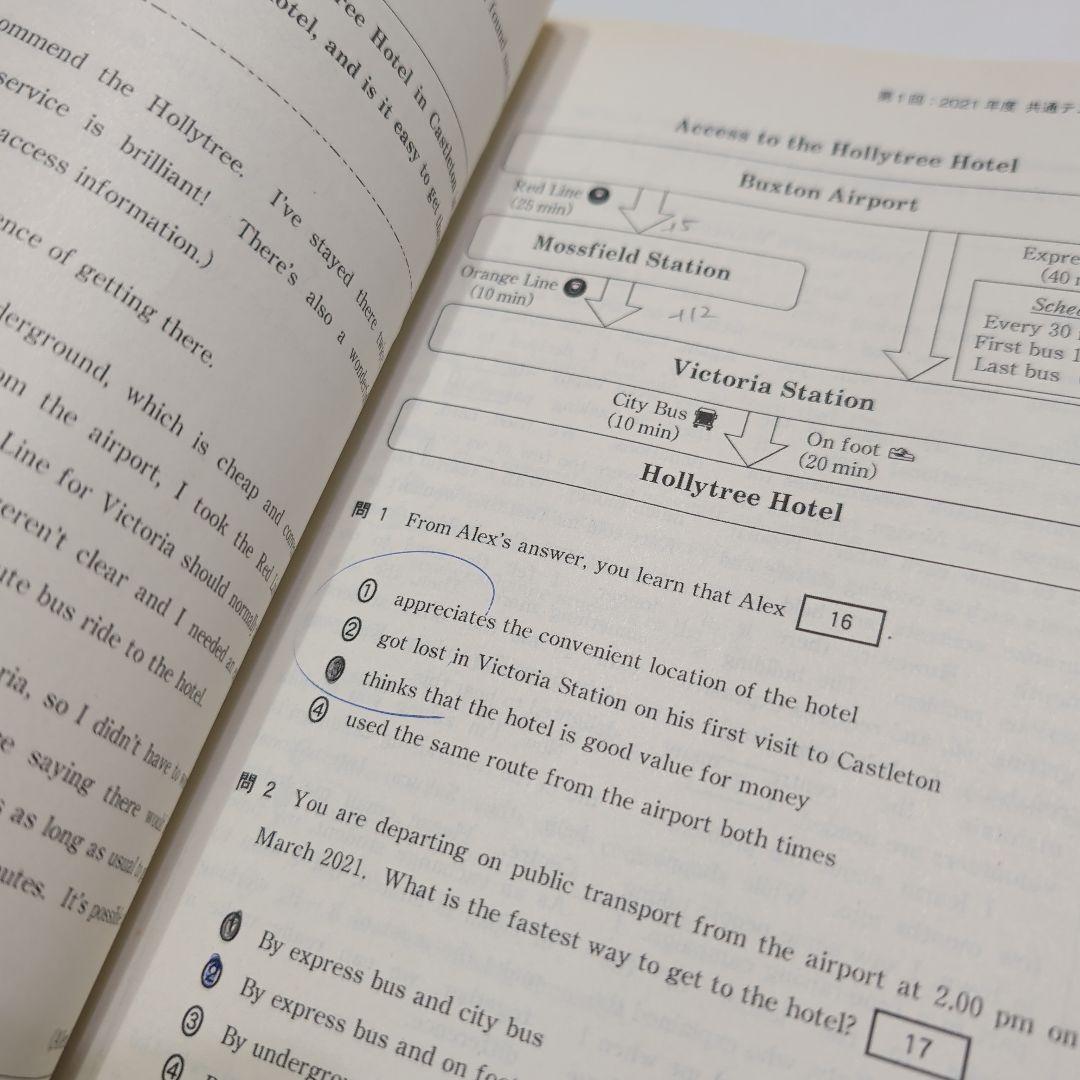 ree Hotel in Castleton
otel, and is it easy to get
ommend the Hollytree. I've stayed there
service is brilliant! There's also a
access information.)
ence of getting there.
derground, which is cheap and
om the airport, I took the Red
Line for Victoria should
weren't clear and I needed
ute bus ride to the hotel.
ria, so I didn't have to
re saying there
s as long as usual
utes. It's
第1回:2021年度 共通テ
Access to the Hollytree Hotel
Buxton Airport
Red Line
(25 min)
+5
Mossfield Station
Expre
(40
Orange Line
(10 min)
+12
Every 30
First bus
Last bus
Victoria Station
City Bus
(10 min)
On foot
(20 min)
Hollytree Hotel
問1 From Alex's answer, you learn that Alex 16 .
① appreciates the convenient location of the hotel
② got lost in Victoria Station on his first visit to Castleton
thinks that the hotel is good value for money
④ used the same route from the airport both times
問2 You are departing on public transport from the airport at 2.00 pm on
March 2021. What is the fastest way to get to the hotel? 17
① By express bus and city bus
② By express bus and on foo
③ By undergro
④